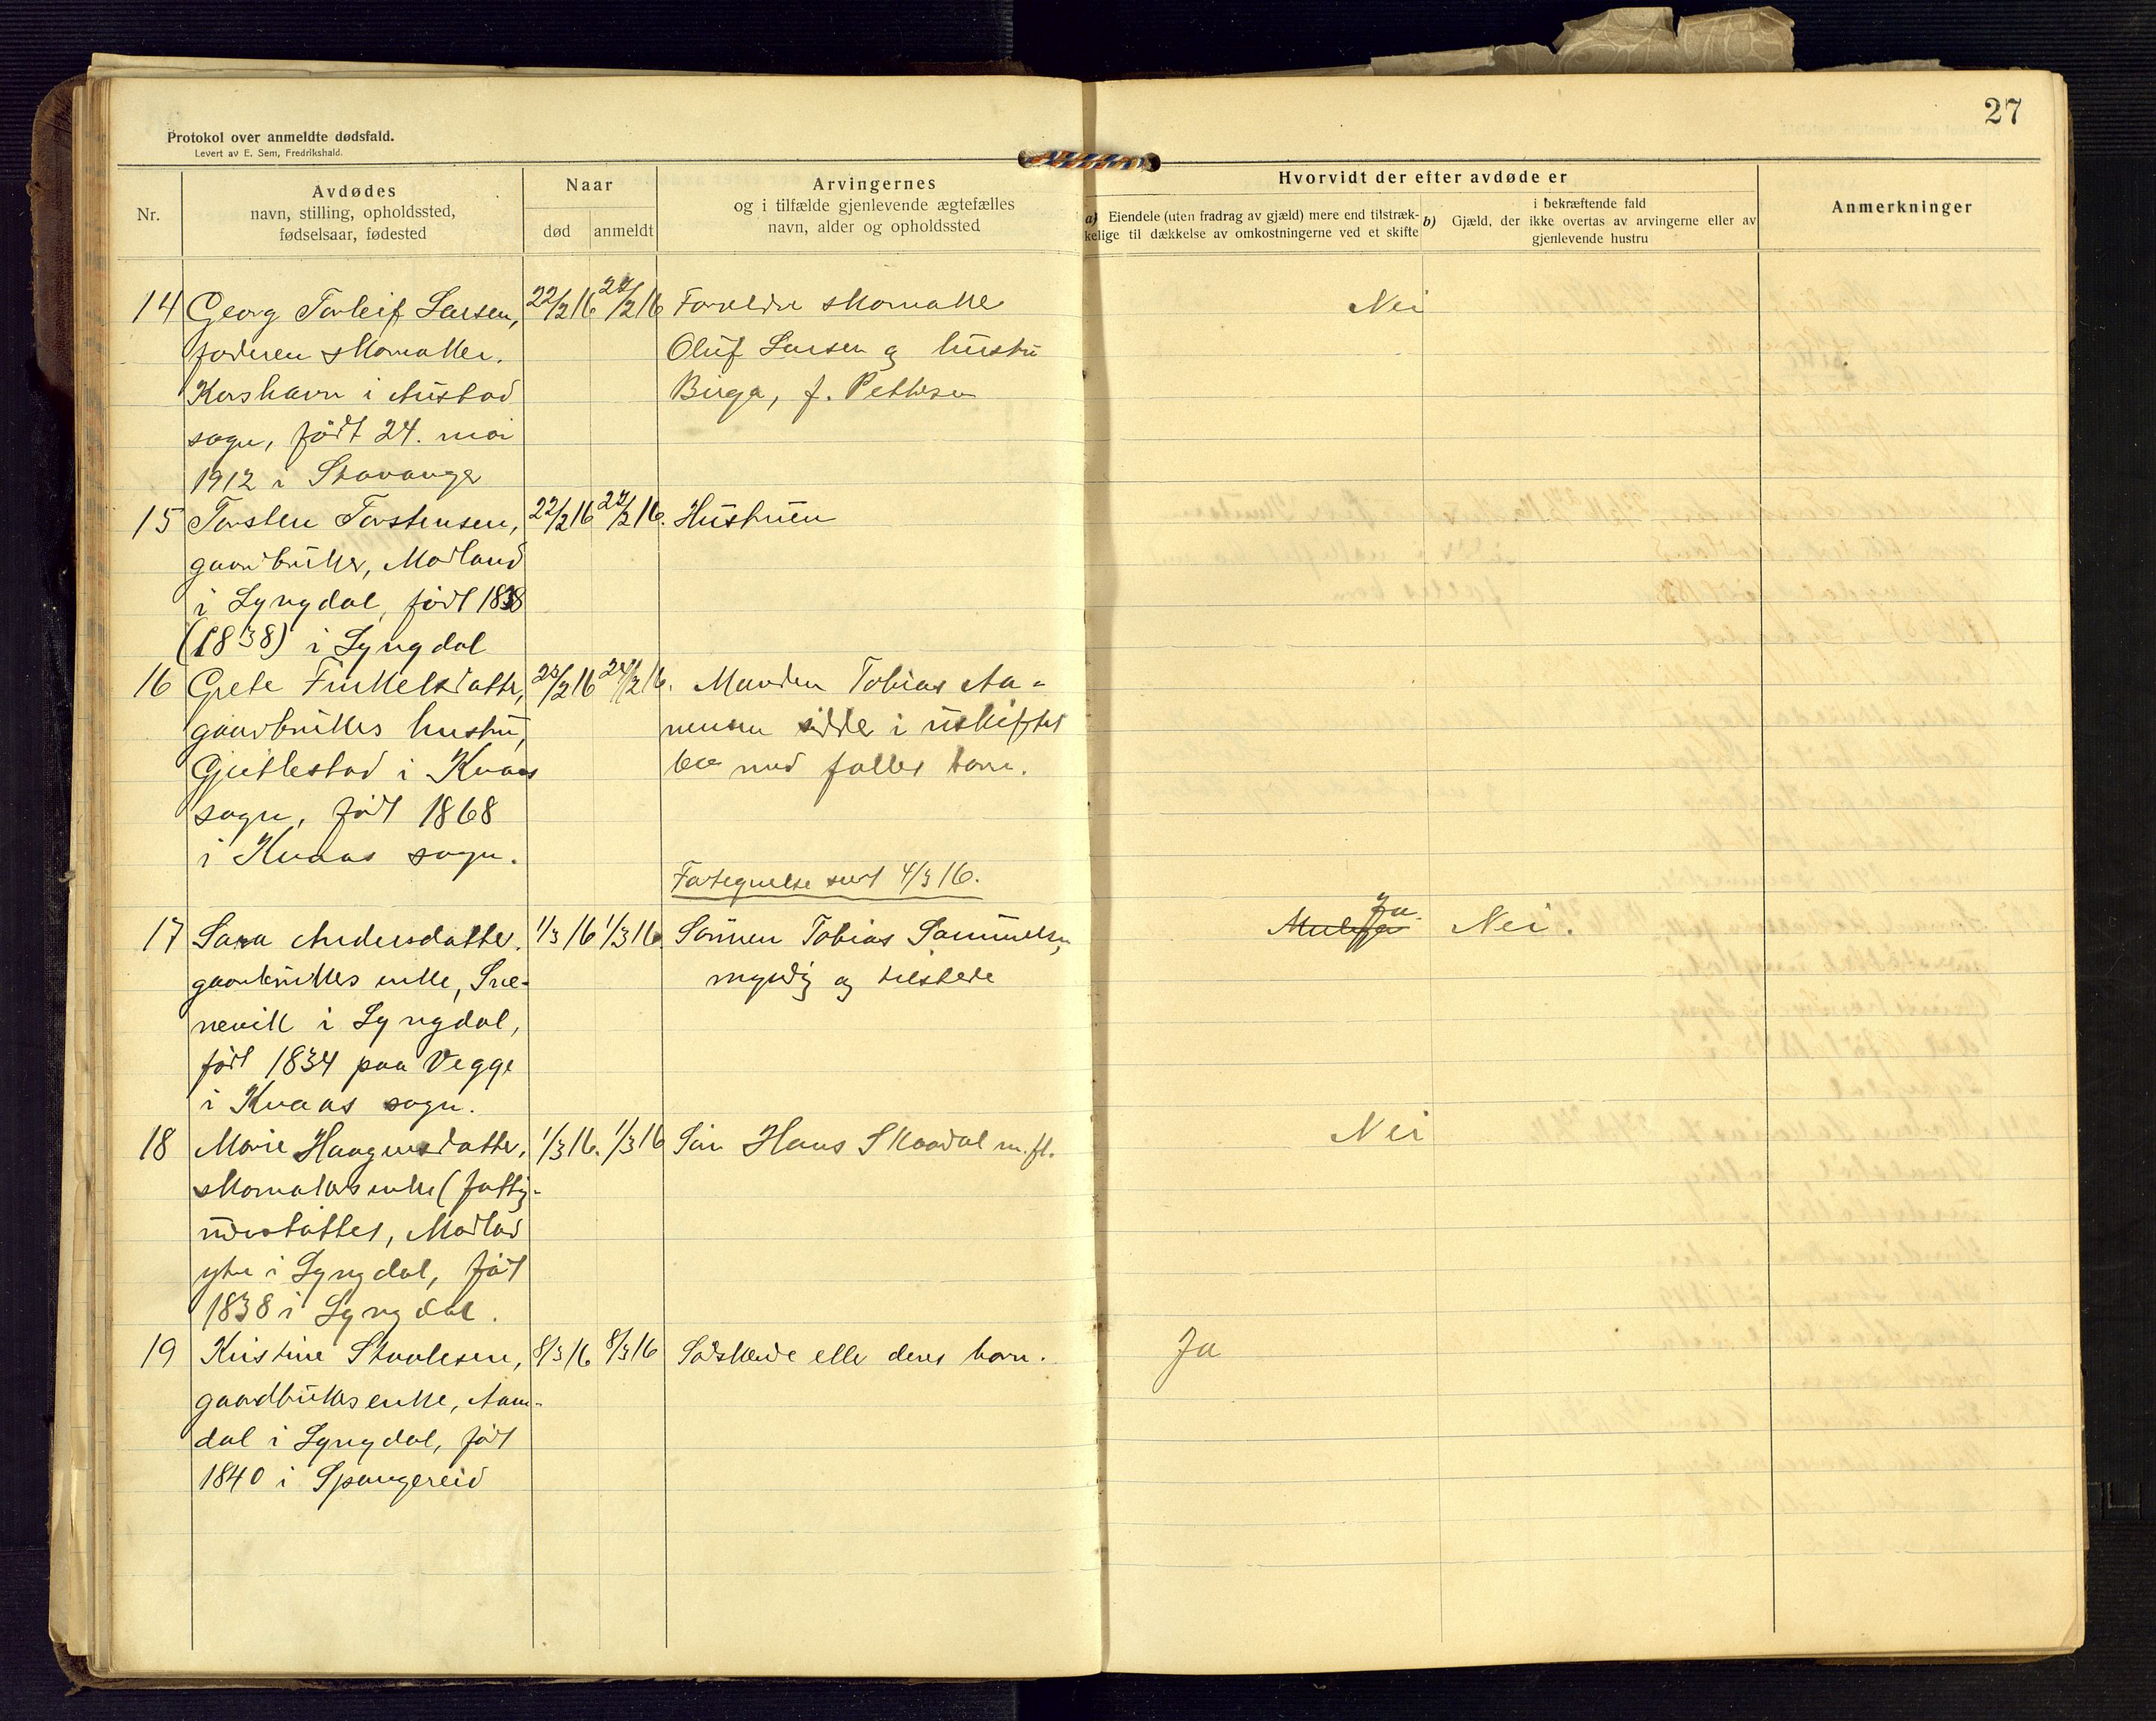 27
Protokol over anmeldte dødsfald.
Levert av E. Sem, Fredrikshald.
Nr.
Avdødes
navn, stilling, opholdssted,
fødselsaar, fødested
Naar
død
anmeldt
Arvingernes
og i tilfælde gjenlevende ægtefælles
navn, alder og opholdssted
Hvorvidt der efter avdøde er
a) Eiendele (uten fradrag av gjæld) mere end tilstræk-
kelige til dækkelse av omkostningerne ved et skifte
i bekræftende fald
b) Gjæld, der ikke overtas av arvingerne eller av
gjenlevende hustru
Anmerkninger
14 Georg Torleif Larsen, 22/2 16 24/2 16 Foreldre skomaker Nei
faderen skomaker. Oluf Larsen og hustru
Korshavn i Austad Birga, f. Pettersen
sogn, født 24. mai
1912 i Stavanger
15 Torsten Torstensen, 22/2 16 24/2 16. Hustruen
gaardbruker, Modland
i Lyngdal, født 1838
(1838) i Lyngdal
16 Grete Tinkelsdatter, 23/2 16 24/2 16. Manden Tobias Aa-
gaardbrukers hustru, nensen sidder i uskiftet
Gjertlestad i Kvaas bo med fælles barn.
sogn, født 1868
i Kvaas sogn.
Fortegnelse sent 4/3 16.
17 Sara Andersdatter. 1/3 16 1/3 16 Sønnen Tobias Samuelsen, Ja Nei.
gaardbrukers enke, Sve- myndig og tilstede
nevik i Lyngdal,
født 1834 paa Vegge
i Kvaas sogn.
18 Marie Haagensdatter, 1/3 16. 1/3 16 Søn Hans Skaadal m. fl. Nei
skomakers enke (fattig-
understøttet, Modland
ytre i Lyngdal, født
1838 i Lyngdal.
19 Kristine Staalesen, 8/3 16 8/3 16 Sødskende eller deres barn. Ja
gaardbrukers enke, Aam-
dal i Lyngdal, født
1840 i Spangereid